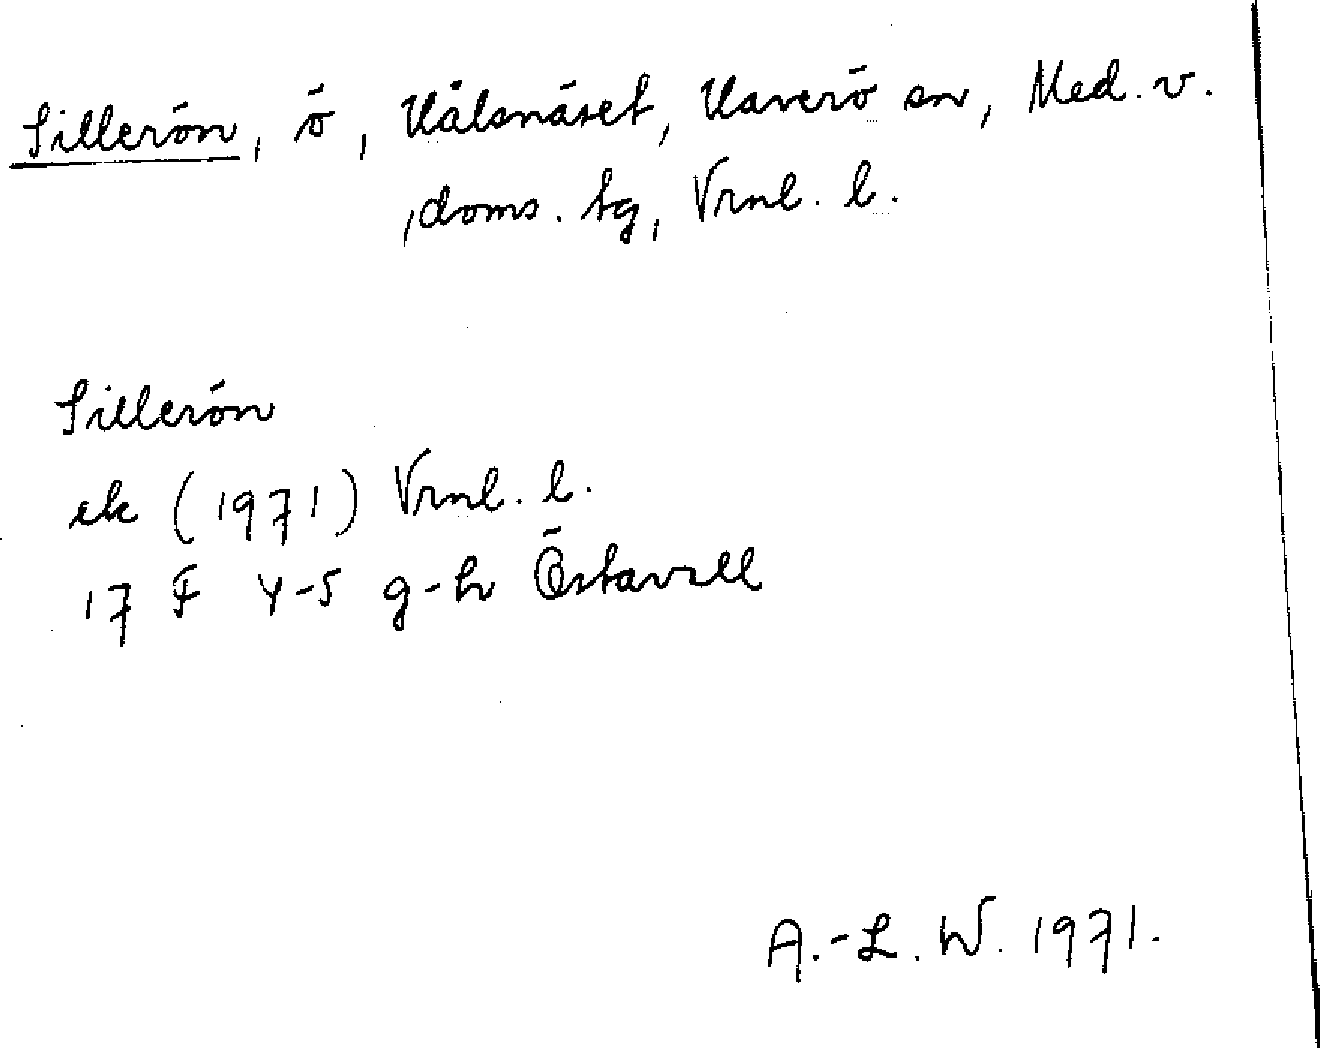 Sillerön, ö, Hålsnäset, Haverö sn, Med. v.
doms. tg, Vrnl. l.
Sillerön
ek (1971) Vrnl. l.
17 F 4-5 g-h Östavall
A.-L. W. 1971.